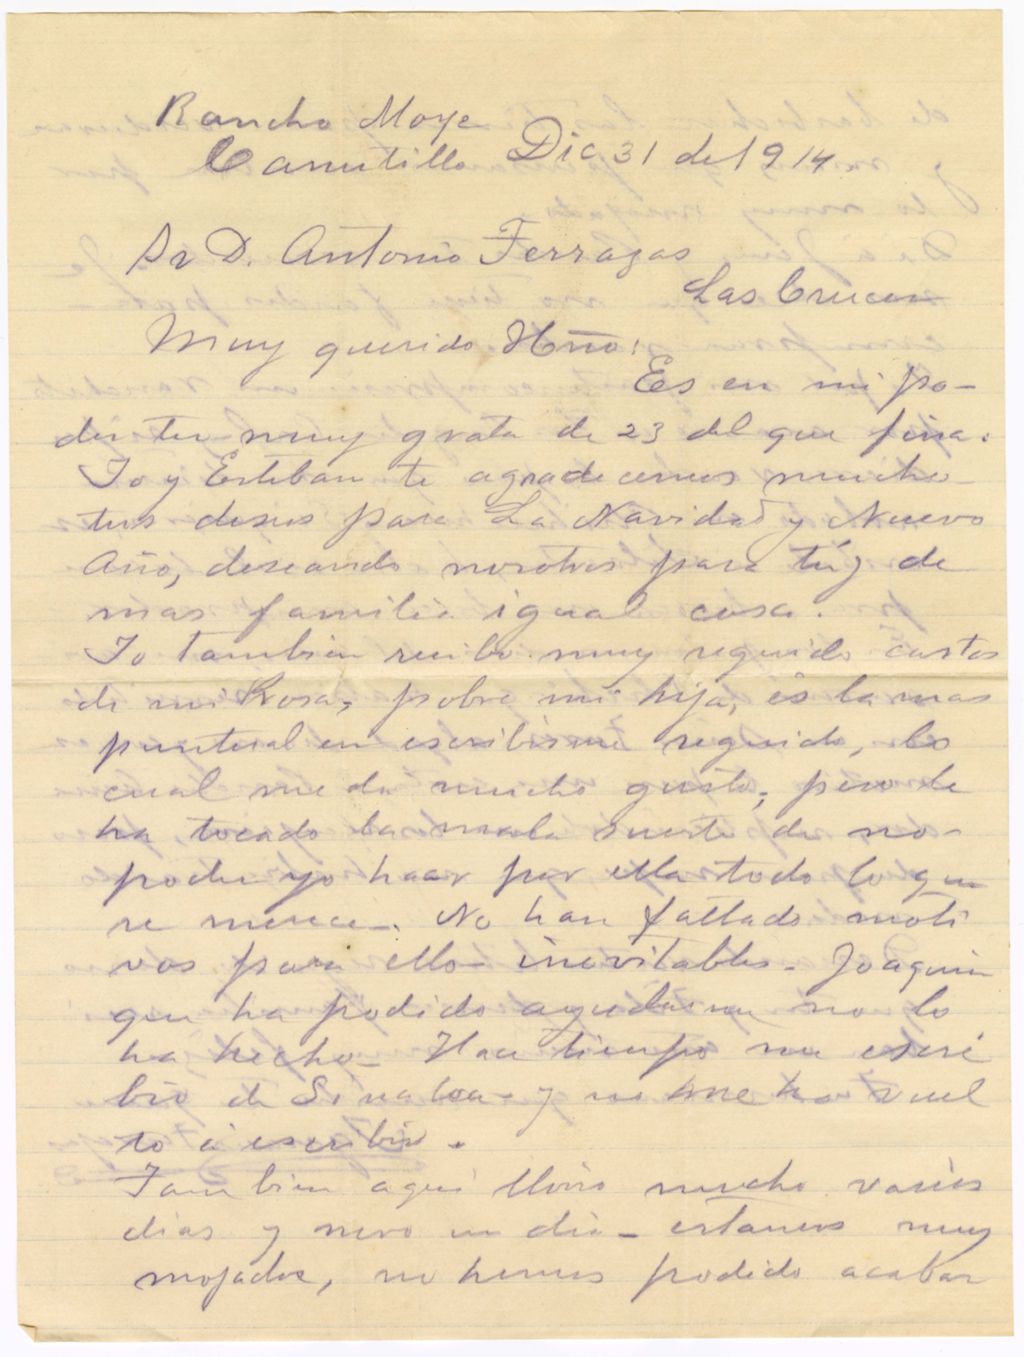 Rancho Moye
Canutillo Dic 31 de 1914.
Sr D. Antonio Terrazas
Las Cruces
Muy querido Hño:
Es en mi po-
der tu muy grata de 23 del que fina.
Yo y Esteban te agradecemos mucho
tus deseos para La Navidad y Nuevo
Año, deseando nosotros para tú y de
mas familia igual cosa.
Yo tambien recibo muy seguido cartas
de mi Rosa, pobre mi hija, es la mas
puntual en escribirme seguido, lo
cual me da mucho gusto, pero le
ha tocado la mala suerte de no-
poder yo hacer por ella todo lo que
se merece. No han faltado moti
vos para ello inevitables. Joaquin
que ha podido ayudarme no lo
ha hecho. Hace tiempo me escri
bió de Sinaloa y no me ha vuel
to á escribir.
Tambien aqui llovió mucho varios
dias y nevo un dia estamos muy
mojados, no hemos podido acabar